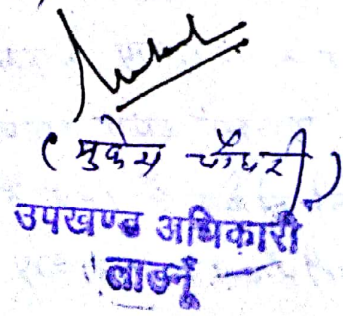 ( मुकेश चौधरी )
उपखण्ड अधिकारी
लाडनूँ